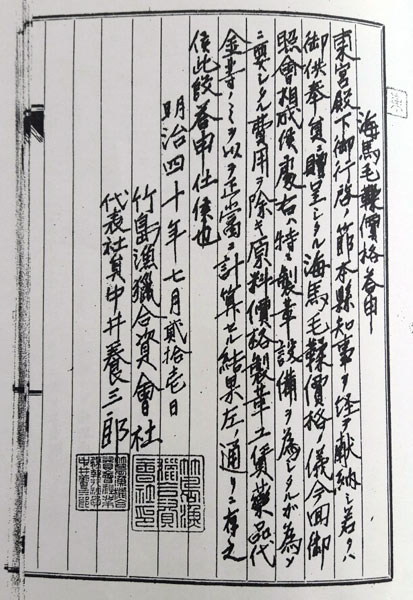 海馬毛鞣價格答申
東宮殿下御行啓ノ節本縣知事ヲ経テ献納シ若クハ
御供奉員ニ贈呈シタル海馬毛鞣價格ノ儀今回御
照會相成候處右ハ特ニ製革設備ヲ為シタルガ為メ
ニ要シタル費用ヲ除キ原料價格製革工賃藥品代
金等ノミヲ以テ正當ニ計算セル結果左ノ通リニ有之
候此段答申仕候也
明治四十年七月貳拾壱日
竹島漁獵合資會社
代表社員中井養三郎
竹島漁獵合資會社印